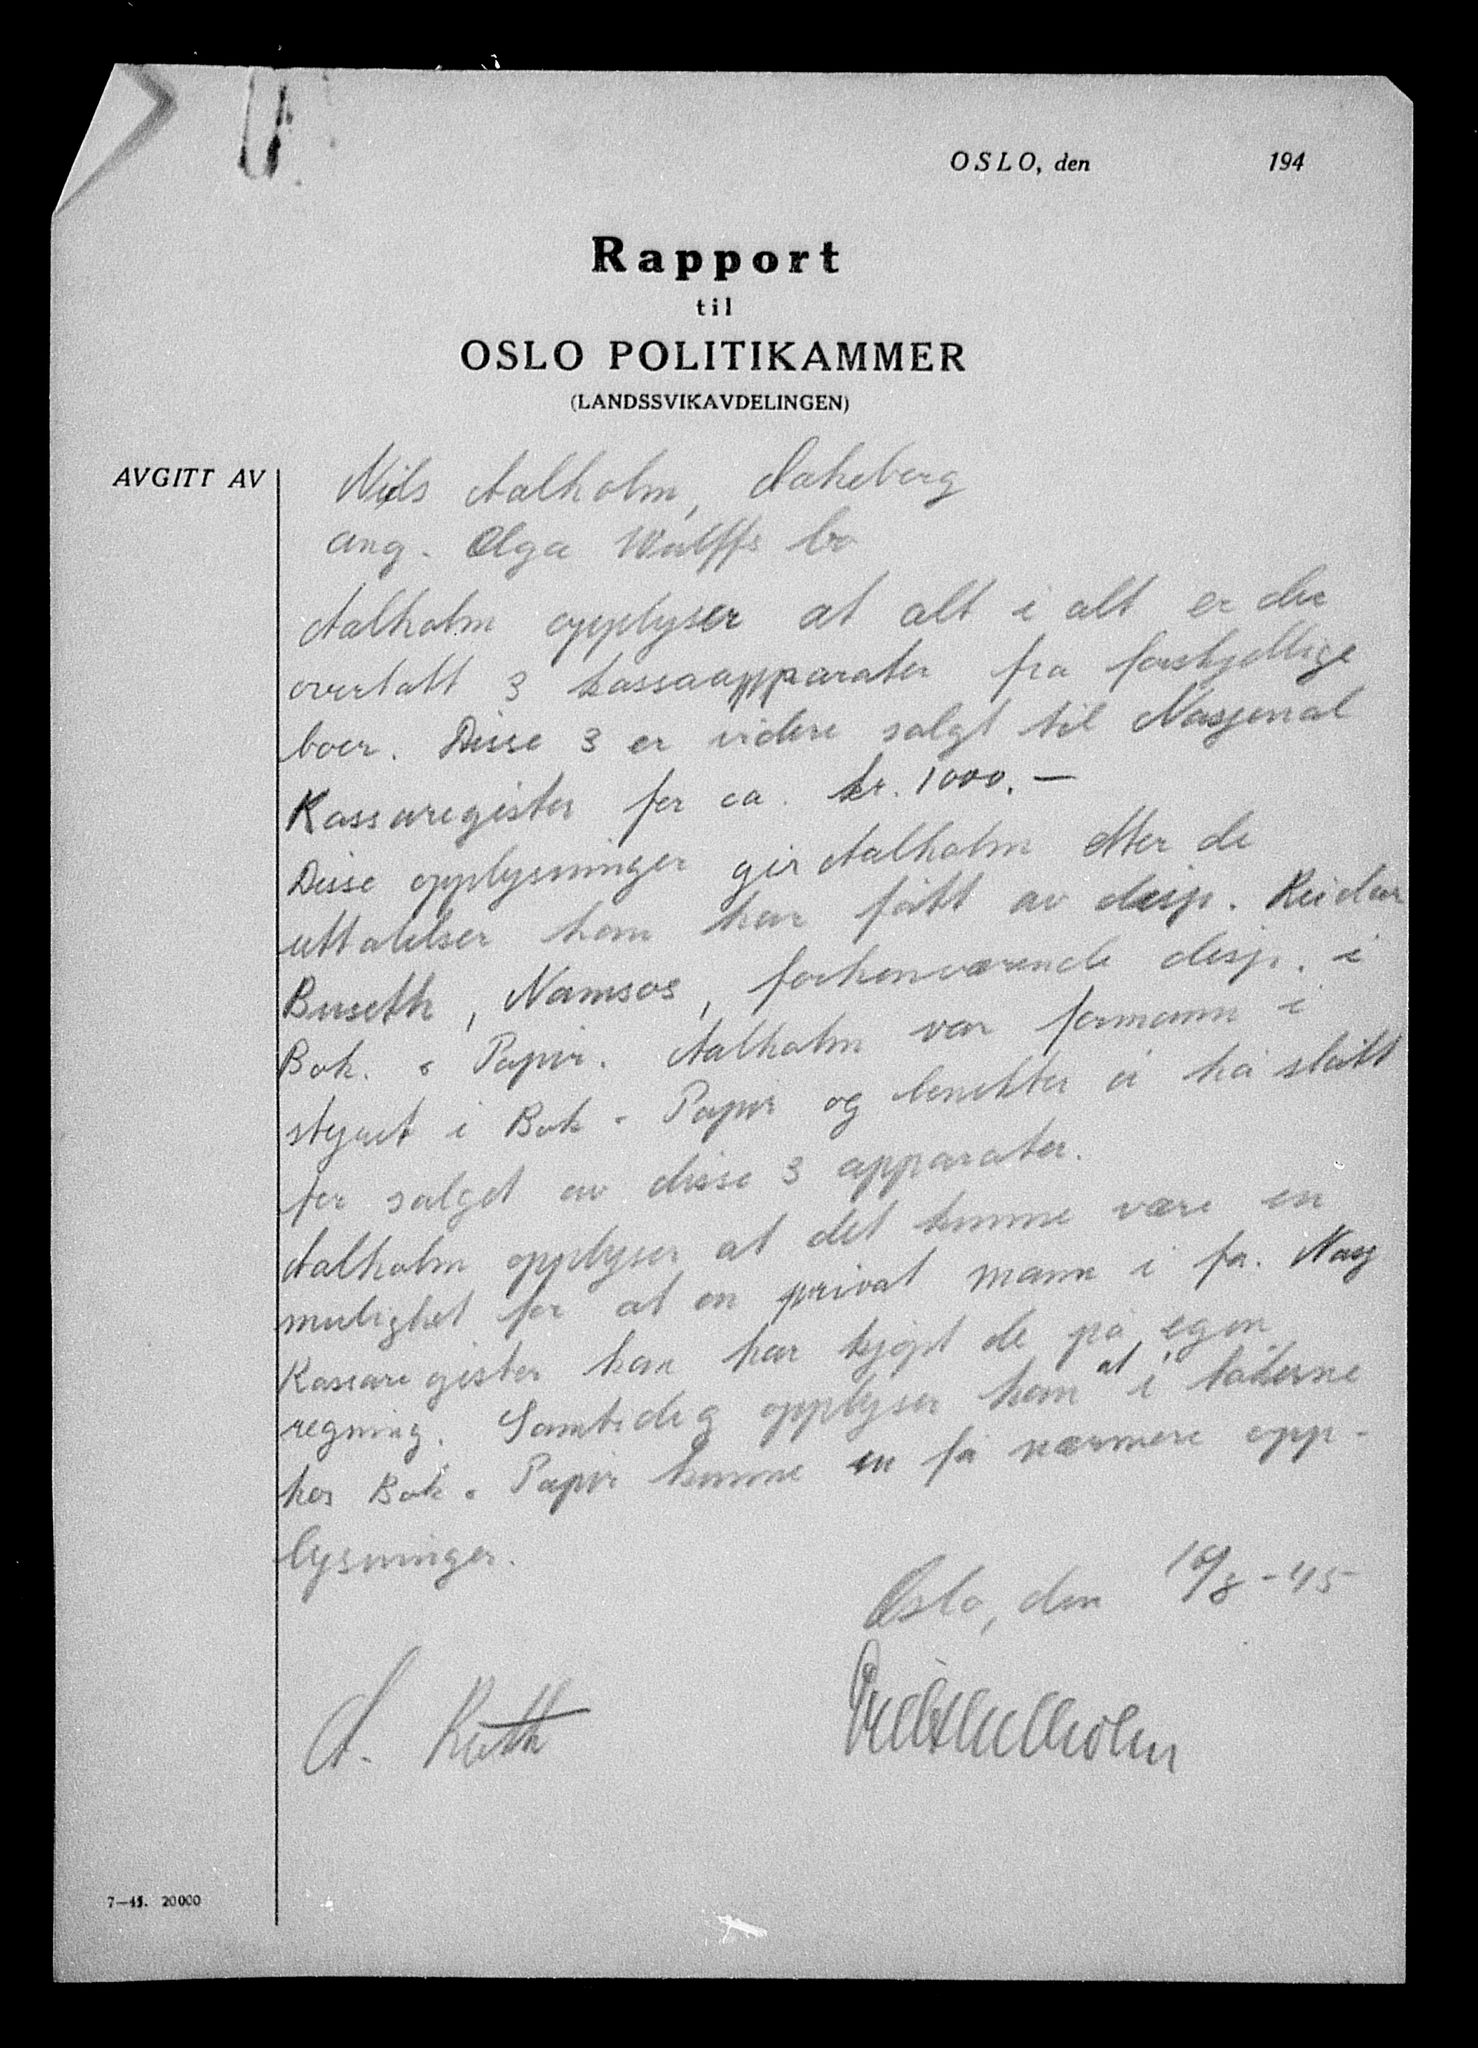 OSLO, den 194
Rapport
til
OSLO POLITIKAMMER
(LANDSSVIKAVDELINGEN)
AVGITT AV
Nils Aalholm, Aakeberg
ang. Olga Wulffs bo
Aalholm opplyser at alt i alt er der
overtatt 3 kassaapparater fra forskjellige
boer. Disse 3 er videre solgt til Nasjonal
Kassaregister for ca. kr. 1000.—
Disse opplysninger gir Aalholm etter de
uttalelser han har fått av disp. Reidar
Buseth, Namsos, forhenværende disp. i
Bok. & Papir. Aalholm var formann i
styret i Bok - Papir og benekter å ha stått
for salget av disse 3 apparater.
Aalholm opplyser at det kunne være en
mulighet for at en privat mann i fa. Nasj
Kassaregister han har kjøpt de på egen
regning. Samtidig opplyser han at i bøkerne
hos Bok - Papir kunne en få nærmere opp-
lysninger.
Oslo, den 10/8 - 45
A. Ruth
Aalholm
7—45. 20000